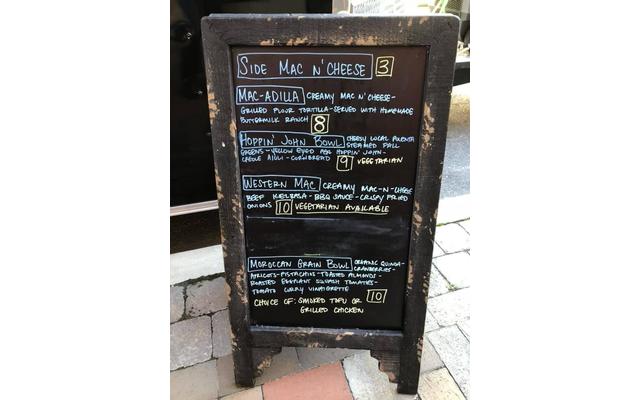 SIDE MAC N' CHEESE 3
MAC-ADILLA CREAMY MAC N' CHEESE-
GRILLED FLOUR TORTILLA-SERVED WITH HOMEMADE
BUTTERMILK RANCH 8
HOPPIN' JOHN BOWL CHEESY LOCAL POLENTA
STEAMED FALL
GREENS-YELLOW EYED PEA HOPPIN' JOHN-
CREOLE AIOLI-CORNBREAD 9 VEGETARIAN
WESTERN MAC CREAMY MAC-N-CHEESE
BEEF KIELBASA-BBQ SAUCE-CRISPY FRIED
ONIONS 10 VEGETARIAN AVAILABLE
MOROCCAN GRAIN BOWL ORGANIC QUINOA-
CRANBERRIES-
APRICOTS-PISTACHIOS-TOASTED ALMONDS-
ROASTED EGGPLANT SQUASH TOMATOES-
TOMATO CURRY VINAIGRETTE
CHOICE OF: SMOKED TOFU OR 10
GRILLED CHICKEN